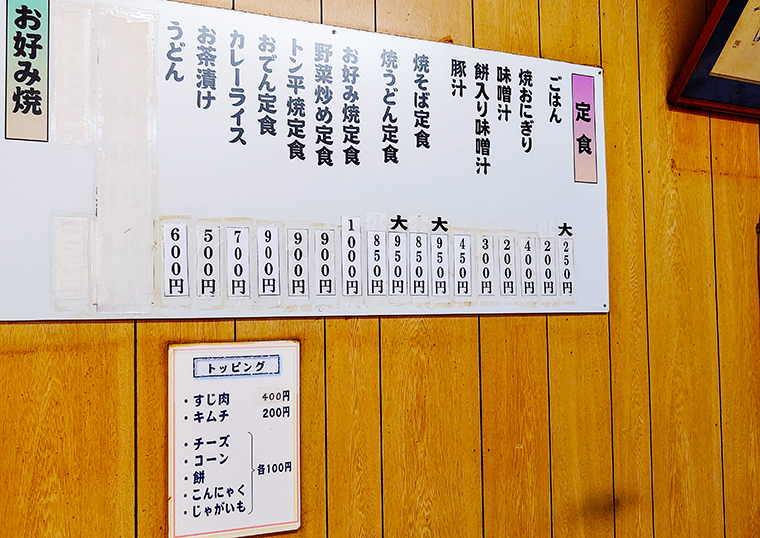 定食
ごはん 大250円 200円
焼おにぎり 400円
味噌汁 200円
餅入り味噌汁 300円
豚汁 450円
焼そば定食 大950円 850円
焼うどん定食 大950円 850円
お好み焼定食 1000円
野菜炒め定食 900円
トン平焼定食 900円
おでん定食 900円
カレーライス 700円
お茶漬け 500円
うどん 600円
お好み焼
トッピング
・すじ肉 400円
・キムチ 200円
・チーズ
・コーン
・餅 各100円
・こんにゃく
・じゃがいも